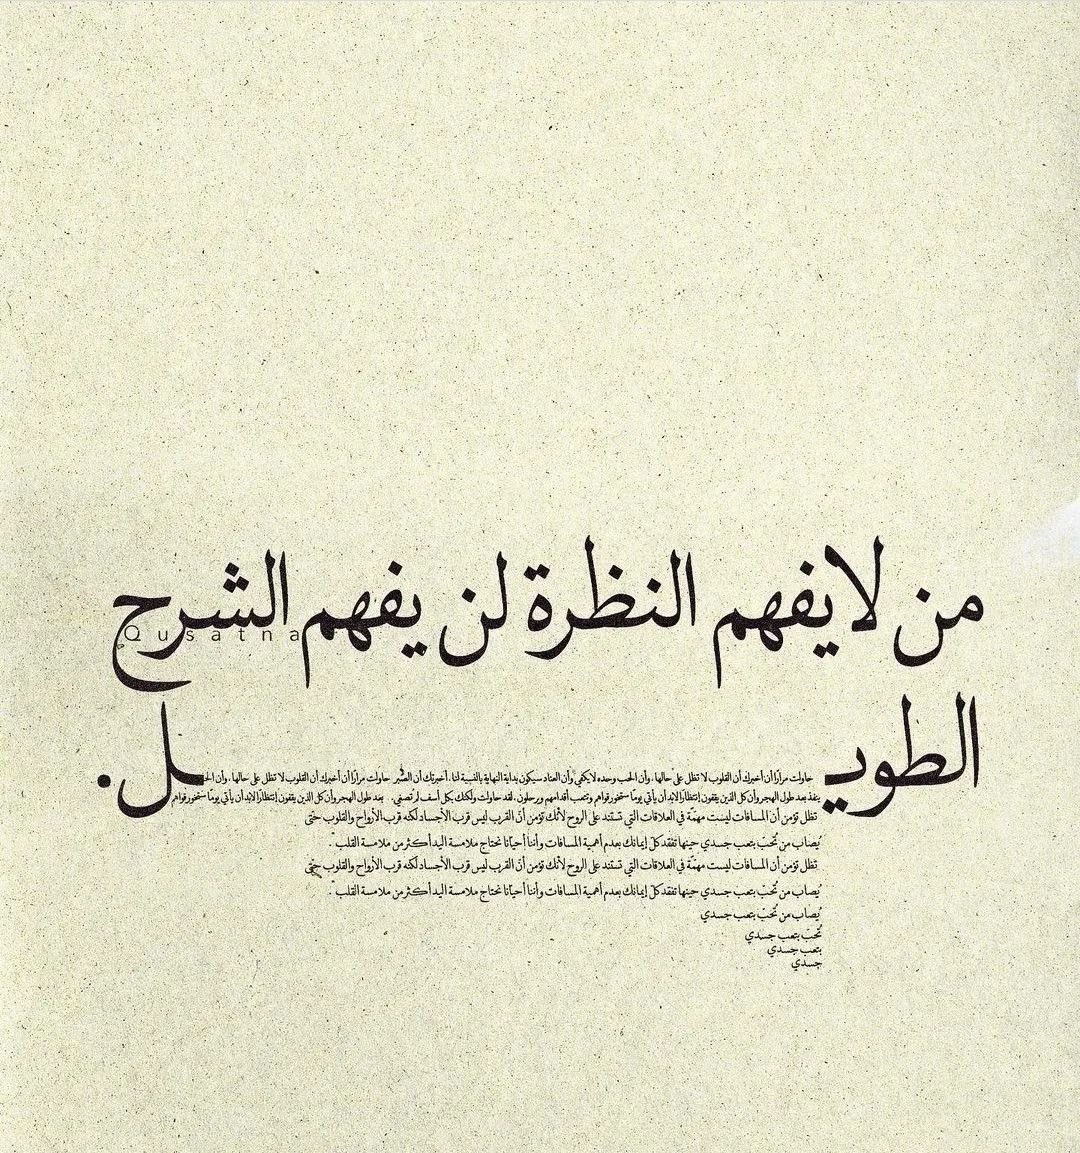 من لا يفهم النظرة لن يفهم الشرح
Qusatna
الطويـــل.
حاولت مرارًا أن أخبرك أن القلوب لا تظل على حالها، وأن الحب وحده لايكفي وأن العناد سيكون بداية النهاية بالنسبة لنا، أخبرتك أن الصبر حاولت مرارًا أن أخبرك أن القلوب لا تظل على حالها، وأن الحب
ينفذ بعد طول الهجر وأن كل الذين يقفون إنتظارًا لابد أن يأتي يومًا ستخور قواهم وتتعب أقدامهم ويرحلون، لقد حاولت ولكنك بكل أسف لم تصغي. بعد طول الهجر وأن كل الذين يقفون إنتظارًا لابد أن يأتي يومًا ستخور قواهم
تظل تؤمن أن المسافات ليست مهمّة في العلاقات التي تستند على الروح لأنك تؤمن أنّ القرب ليس قرب الأجساد لكنه قرب الأرواح والقلوب حتى
يُصاب من تُحبّ بتعب جسدي حينها تفقد كلّ إيمانك بعدم أهمية المسافات وأننا أحيانًا نحتاج ملامسة اليد أكثر من ملامسة القلب".
تظل تؤمن أن المسافات ليست مهمّة في العلاقات التي تستند على الروح لأنك تؤمن أنّ القرب ليس قرب الأجساد لكنه قرب الأرواح والقلوب حتى
يُصاب من تُحبّ بتعب جسدي حينها تفقد كلّ إيمانك بعدم أهمية المسافات وأننا أحيانًا نحتاج ملامسة اليد أكثر من ملامسة القلب".
يُصاب من تُحبّ بتعب جسدي
تُحبّ بتعب جسدي
بتعب جسدي
جسدي